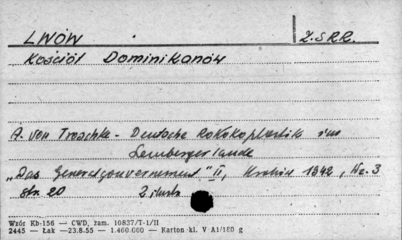 LWÓW Z.S.R.R.
Kościół Dominikanów
A. von Troschke - Deutsche Rokokoplastik im
Lembergerlande
„Das Generalgouvernement" II, Kraków 1942, Nr. 3
str. 20 2 ilustr.
Wzór Kb-156 — CWD, zam. 10837/T-1/II
2445 — Łak — 23.8.55 — 1.460.000 — Karton kl. V A1/180 g